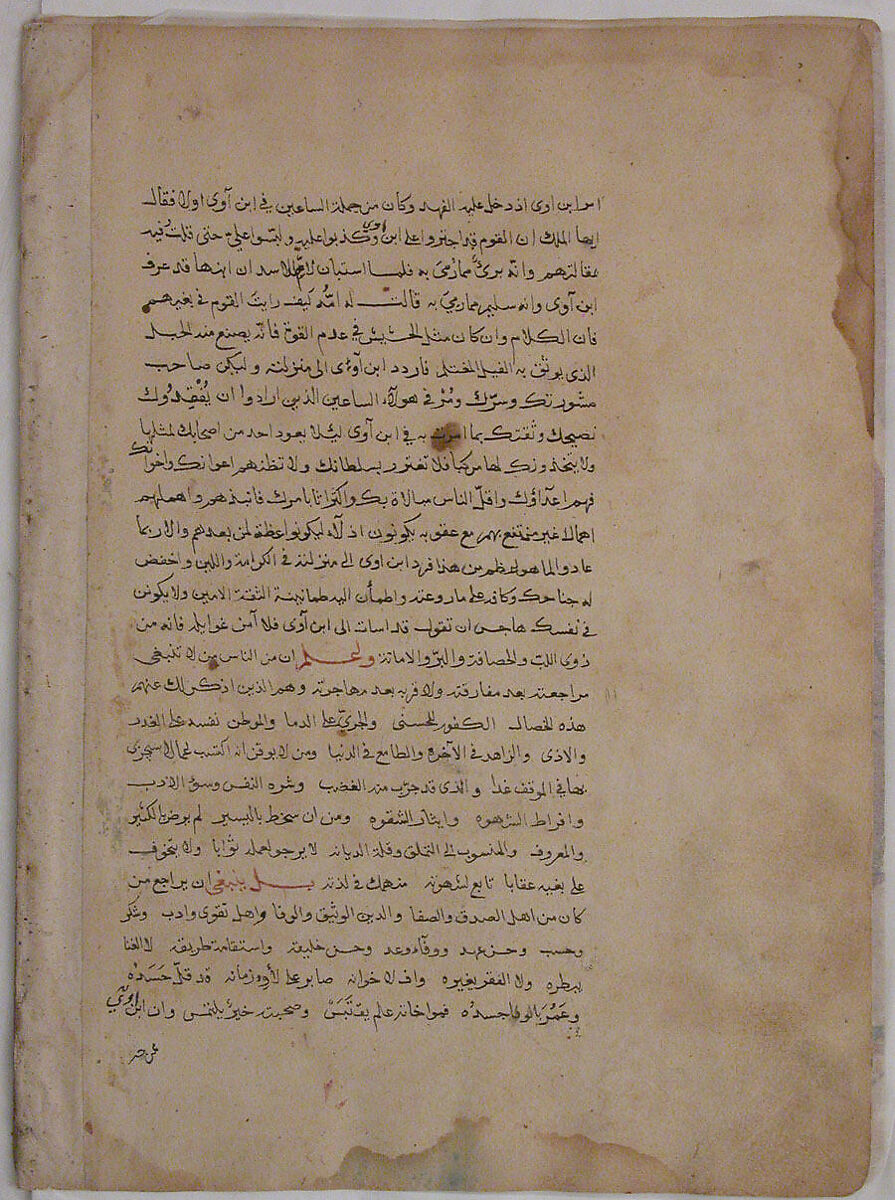 امر ابن اوى اذ دخل عليه الفهد وكان من جملة الساعين في ابن آوى اولا فقال
ايها الملك ان القوم قد اجتروا على ابن اوى وكذبوا عليه ولبسوا علي حتى قلت فيه
مقالتهم وانه برئ مما رمي به فلما استبان لام الاسد ان ابنها قد عرف
ابن آوى وانه سليم مما رمي به قالت له امه كيف رايت القوم في بغيهم
فان الكلام وان كان مثل الحشيش في عدم القوة فانه يصنع منه الحبل
الذي يوثق به الفيل المغتلم فاردد ابن آوى الى منزلته وليكن صاحب
مشورتك وسرك ومر في هولآء الساعين الذين ارادوا ان يفقدوك
نصيحك وثقتك بما امرت به في ابن آوى لئلا يعود احد من اصحابك لمثلها
ولا يتخذونك لها مركبا فلا تغترر بسلطانك ولا تظنهم اعوانك واخوانك
فهم اعداؤك واقل الناس مبالاة بك واكتراثا بامرك فانبذهم واهملهم
اهمالا غير منتفع بهم مع عقوبه يكونون اذلآء ليكونوا عظة لمن بعدهم والا ربما
عادوا لما هو اعظم من هذا فرد ابن اوى الى منزلته في الكرامة واللين واخفض
له جناحك وكافه على ما روعته واطمأن اليه طمانينة الثقة الامين ولا يكونن
في نفسك هاجس ان تقول قد اسات الى ابن آوى فلا آمن غوايله فانه من
ذوى اللب والحصافة والبر والامانة ولعلم ان من الناس من لا تنبغي
مراجعته بعد مفارقته ولا قربه بعد مهاجرته وهم الذين اذكر لك عنهم
هذه الخصال الكفور للحسنى والجرئ على الدما والموطن نفسه على الغدر
والاذى والزاهد في الآخرة والطامع في الدنيا ومن لا يوقن انه اكتسب اعمالا سيجزى
بها في الموقف غدا والذى قد جرب منه الغضب وشره النفس وسؤ الادب
وافراط الشهوه وايثار الشقوه ومن ان سخط باليسير لم يرض بالكثير
والمعروف والمنسوب الى التملق وقلة الديانه لا يرجو لعمله ثوابا ولا يتخوف
على بغيه عقابا تابع لشهوته منهمك في لذته بل ينبغي ان يراجع من
كان من اهل الصدق والصفا والدين الوثيق والوفا واهل تقوى وادب وشكر
وحسب وحسن عهد ووفآء وعد وحسن خليقته واستقامة طريقته لا الغنا
يبطره ولا الفقر يغيره واف لاخوانه صابر على لأوا زمانه قد قل حسده
وعمر بالوفا جسده فمواخاته علم يقتبس وصحبته خير يلتمس وان ابن اوى